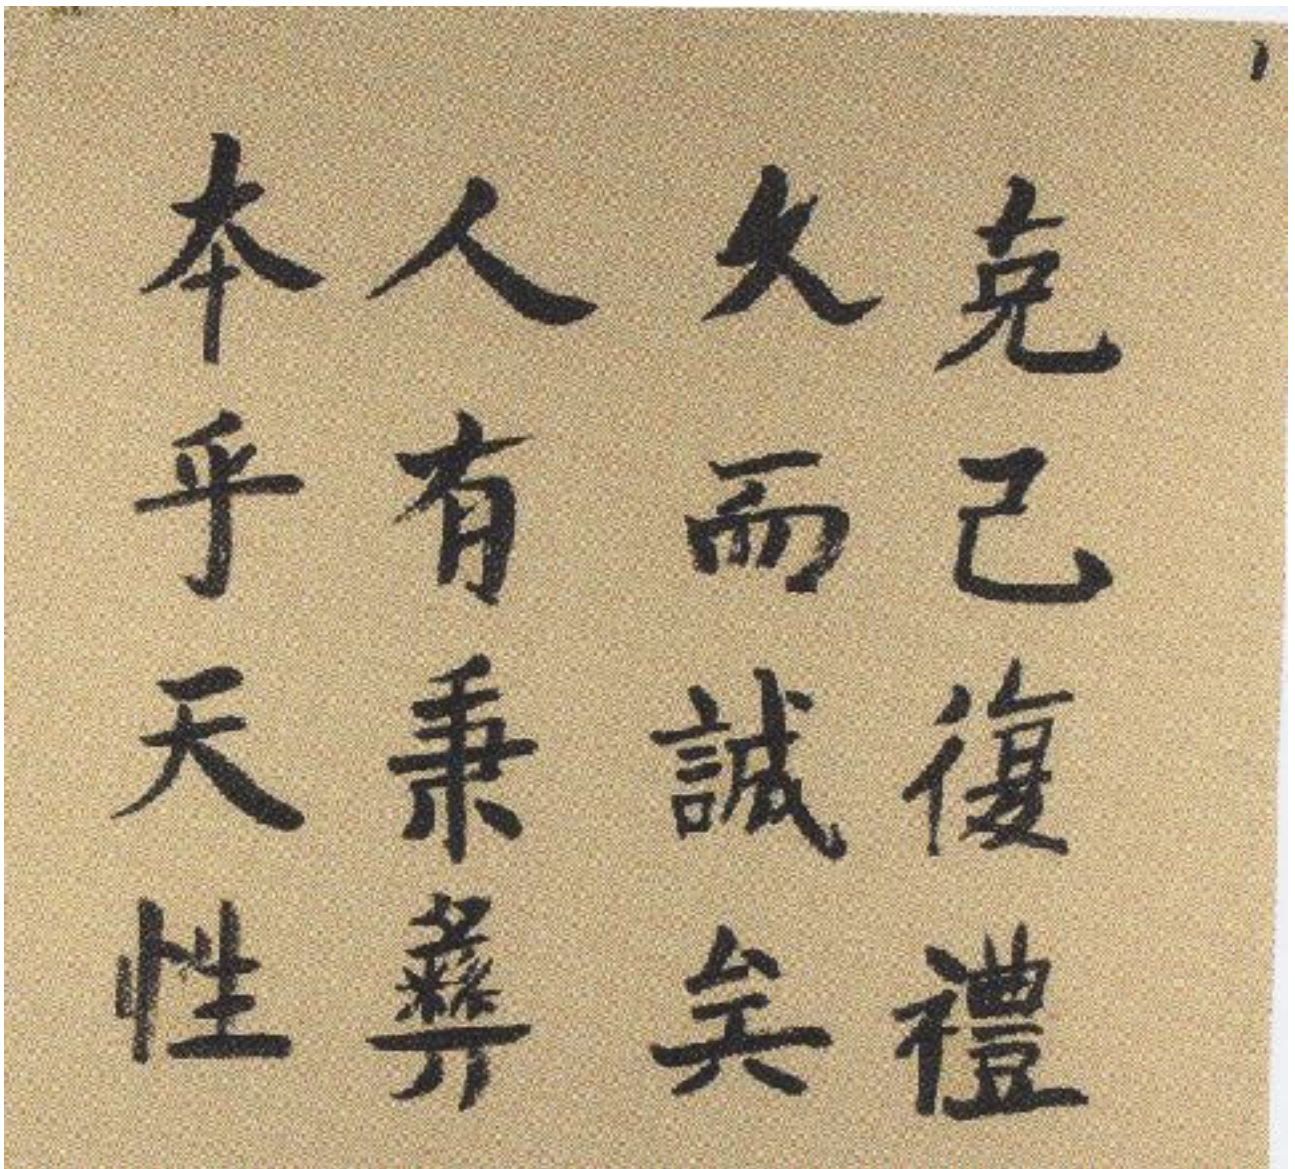 克己復禮
久而誠矣
人有秉彝
本乎天性